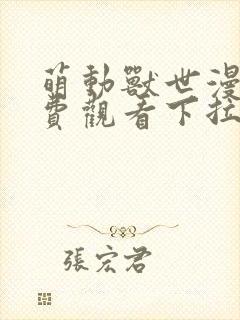 萌動獸世漫
費觀看下拉
張宏君